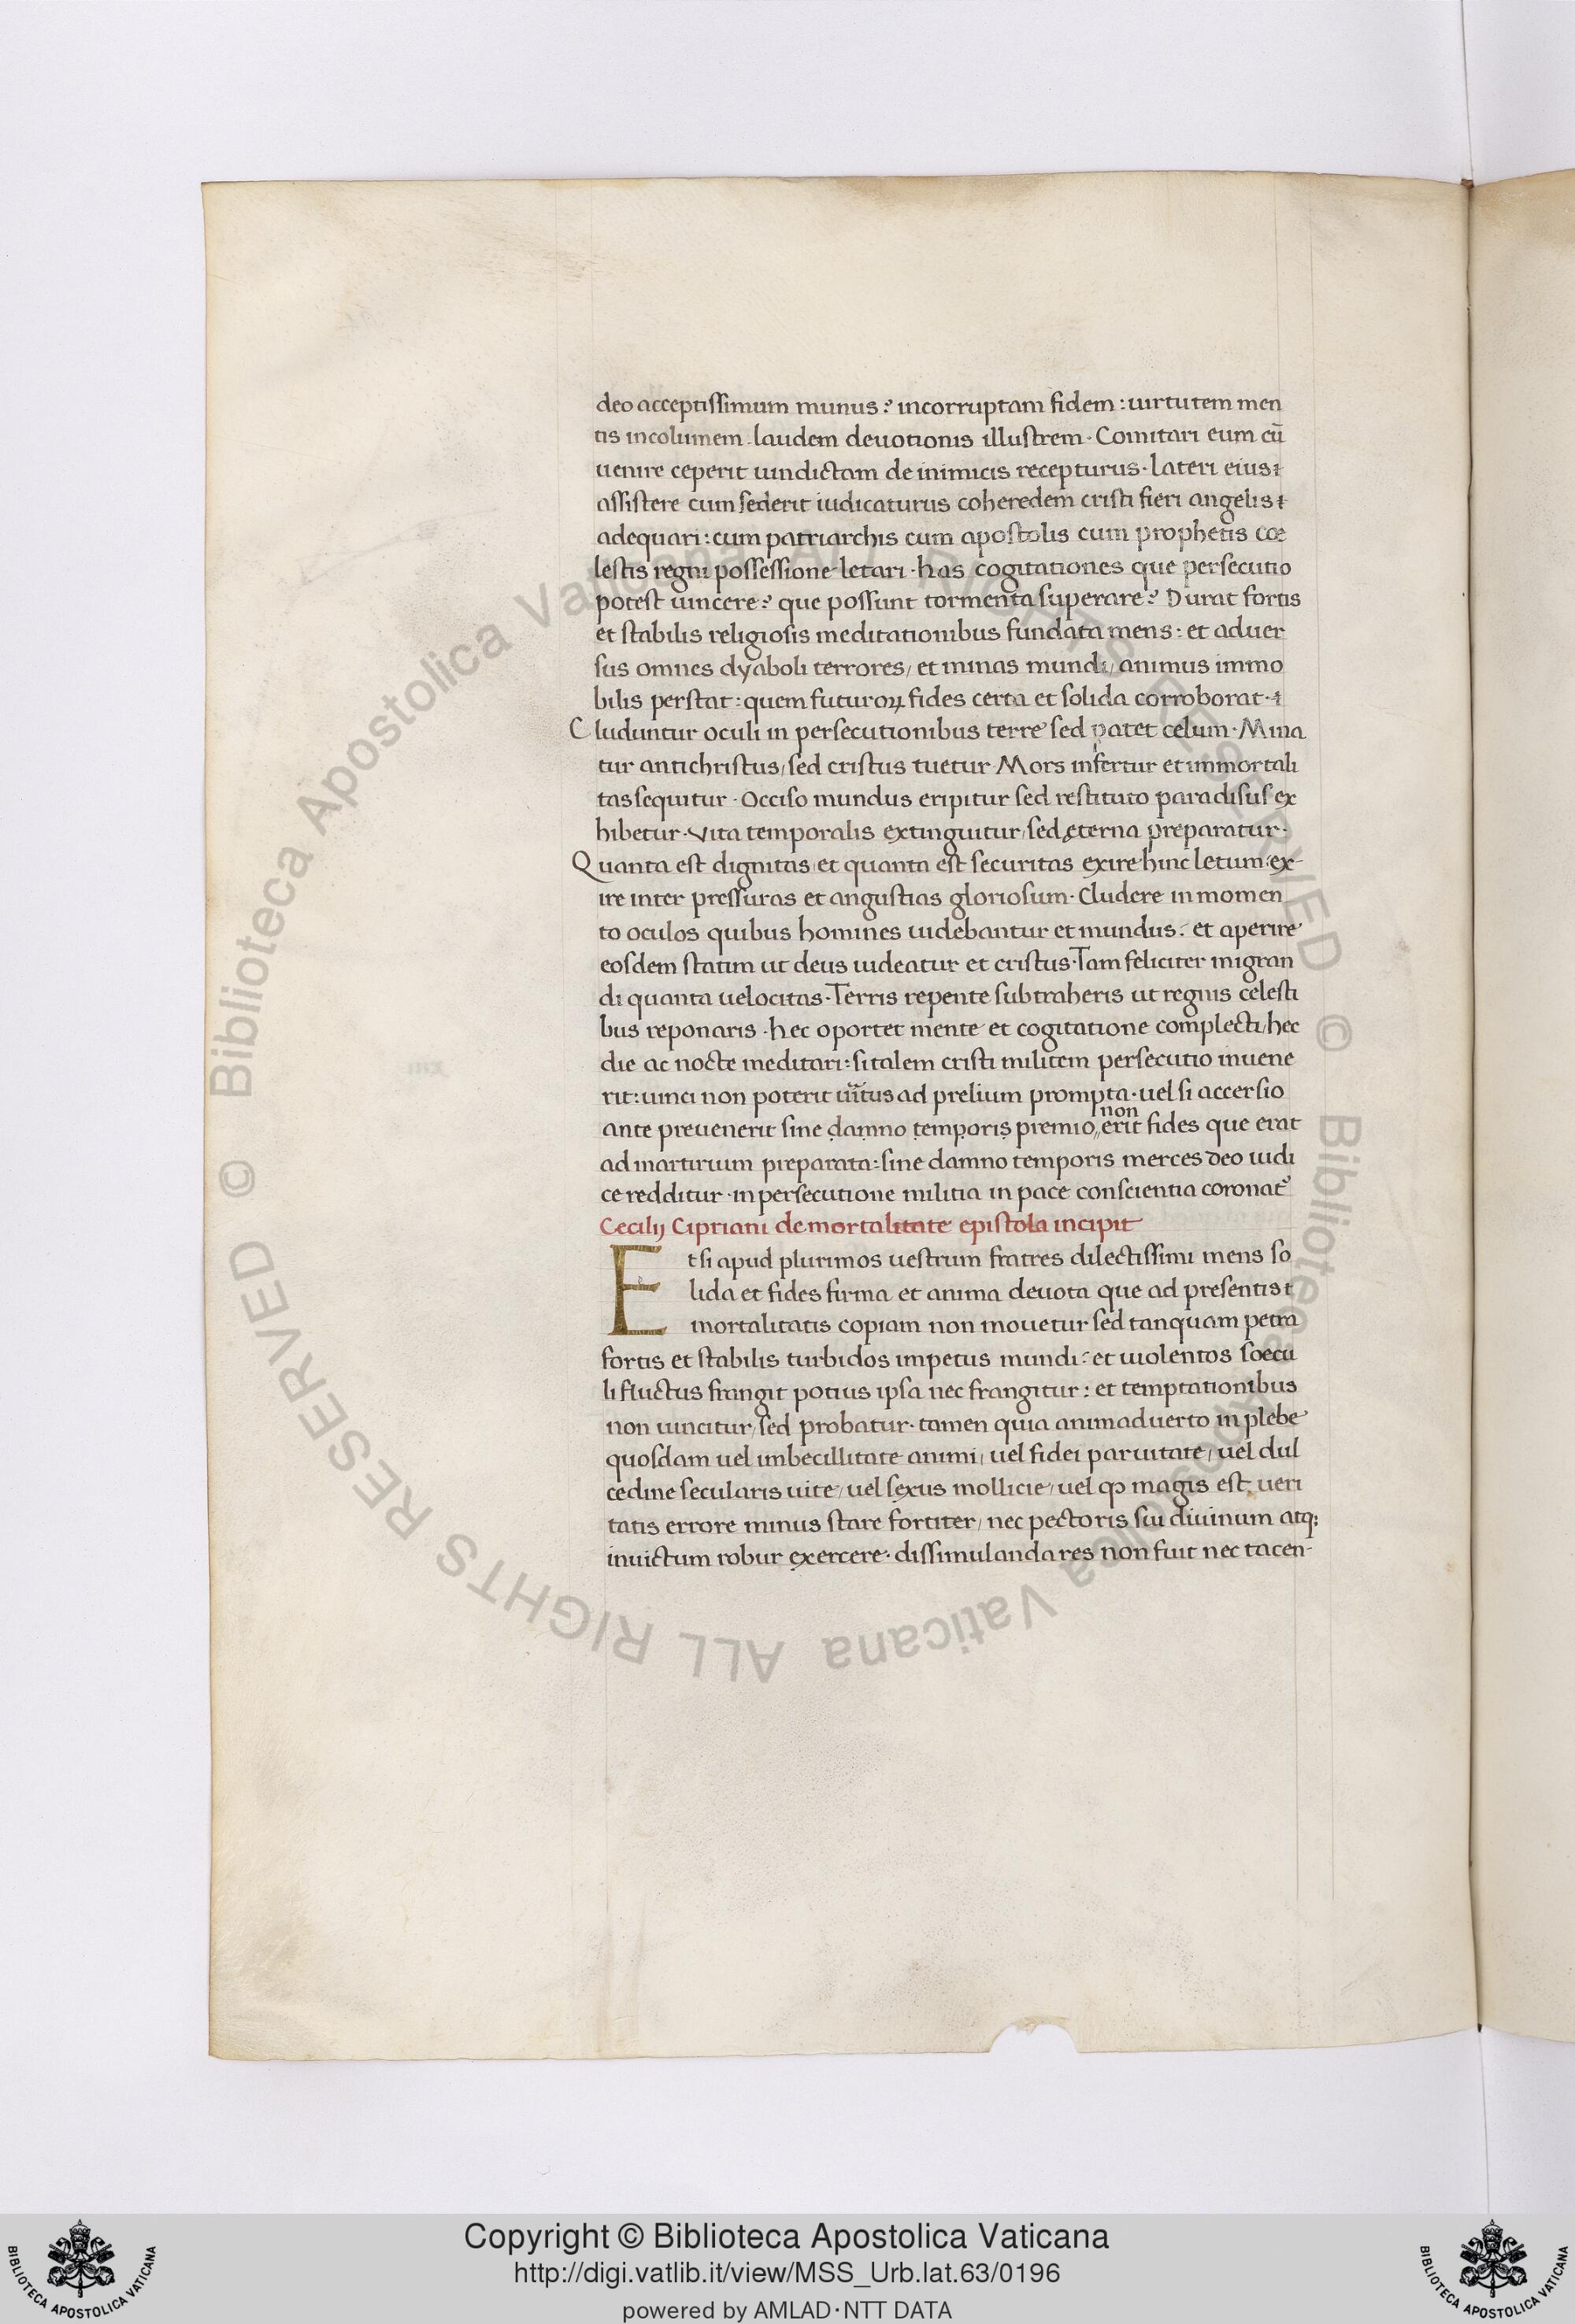 deo acceptissimum munus? incorruptam fidem: uirtutem men
tis incolumem. laudem deuotionis illustrem. Comitari eum cū
uenire ceperit uindictam de inimicis recepturus. lateri eius
assistere cum sederit iudicaturus coheredem cristi fieri angelis
adequari: cum patriarchis cum apostolis cum prophetis coe
lestis regni possessione letari. has cogitationes que persecutio
potest uincere? que possunt tormenta superare? Durat fortis
et stabilis religiosis meditationibus fundata mens: et aduer
sus omnes dyaboli terrores, et minas mundi, animus immo
bilis perstat: quem futuroꝝ fides certa et solida corroborat.
Cluduntur oculi in persecutionibus terre sed patet celum. Mina
tur antichristus, sed cristus tuetur. Mors infertur et immortali
tas sequitur. Occiso mundus eripitur sed restituto paradisus ex
hibetur. Vita temporalis extinguitur, sed ęterna preparatur.
Quanta est dignitas, et quanta est securitas exire hinc letum: ex-
ire inter pressuras et angustias gloriosum. Cludere in momen
to oculos quibus homines uidebantur et mundus: et aperire
eosdem statim ut deus uideatur et cristus. Tam feliciter migran
di quanta uelocitas. Terris repente subtraheris ut regnis celesti
bus reponaris. hec oportet mente et cogitatione complecti, hec
die ac nocte meditari: si talem cristi militem persecutio inuene
rit: uinci non poterit uir̄tus ad prelium prompta. uel si accersio
ante preuenerit sine damno temporis premio, non erit fides que erat
ad martirium preparata: sine damno temporis merces deo iudi
ce redditur. in persecutione militia in pace conscientia coronat᷑
Cecilij Cipriani de mortalitate epistola incipit
Etsi apud plurimos uestrum fratres dilectissimi mens so
lida et fides firma et anima deuota que ad presentis
mortalitatis copiam non mouetur sed tanquam petra
fortis et stabilis turbidos impetus mundi: et uiolentos soecu
li fluctus frangit potius ipsa nec frangitur: et temptationibus
non uincitur, sed probatur. tamen quia animaduerto in plebe
quosdam uel imbecillitate animi, uel fidei paruitate, uel dul
cedine secularis uite, uel sexus mollicie, uel ꝙ magis est, ueri
tatis errore minus stare fortiter, nec pectoris sui diuinum atq;
inuictum robur exercere. dissimulanda res non fuit nec tacen-
© Biblioteca Apostolica Vaticana ALL RIGHTS RESERVED © Biblioteca Apostolica Vaticana ALL RIGHTS RESERVED
Copyright © Biblioteca Apostolica Vaticana
http://digi.vatlib.it/view/MSS_Urb.lat.63/0196
powered by AMLAD·NTT DATA
BIBLIOTECA APOSTOLICA VATICANA
BIBLIOTECA APOSTOLICA VATICANA